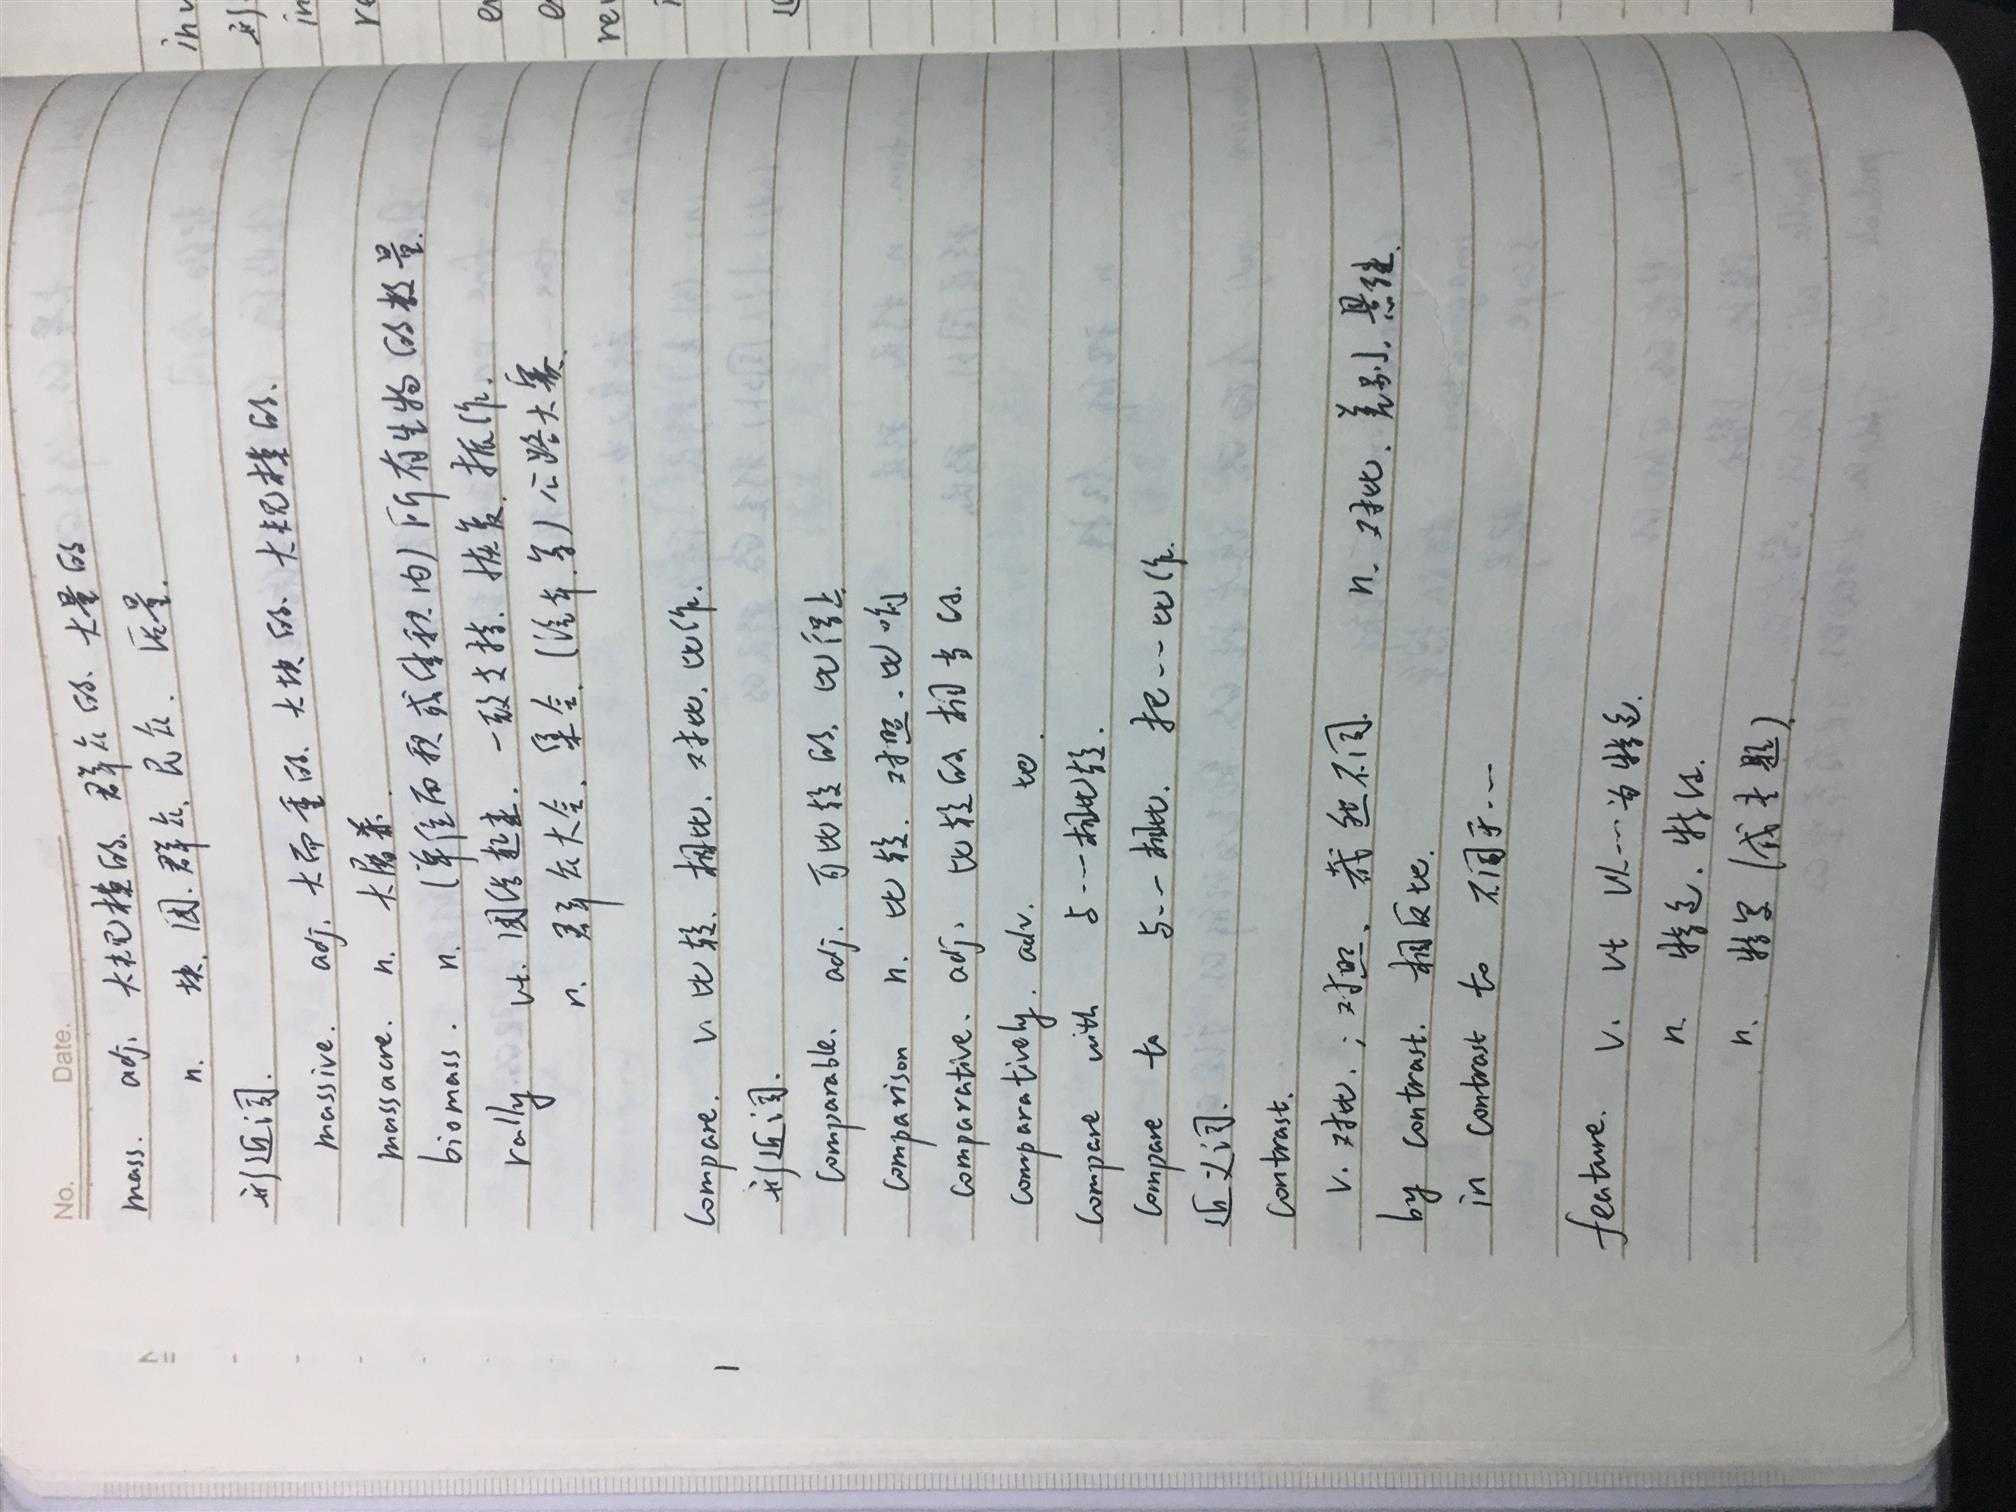 No.
Date.
mass. adj. 大规模的. 群众的. 大量的
n. 块. 团. 群众. 民众. 质量.
形近词.
massive. adj. 大而重的. 大块的. 大规模的.
massacre. n. 大屠杀.
biomass. n. (单位面积或体积内) 所有生物的数量.
rally vt. 团结起来. 一致支持. 恢复. 振作.
n. 群众大会. 集会 (汽车等) 公路大赛
compare. v. 比较. 相比. 对比. 比作.
形近词.
comparable. adj. 可比较的. 比得上
comparison n. 比较. 对照. 比喻
comparative. adj. 比较的 相当的.
comparatively. adv. 比.
compare with 与---相比较.
compare to 与---相比. 把---比作.
近义词.
contrast.
v. 对比.; 对照. 截然不同. n. 对比. 差别. 悬殊.
by contrast. 相反地.
in contrast to 不同于---
feature. v. vt 以---为特色.
n. 特色. 特征.
n. 特写 (或专题)
inv
形
in
re
1